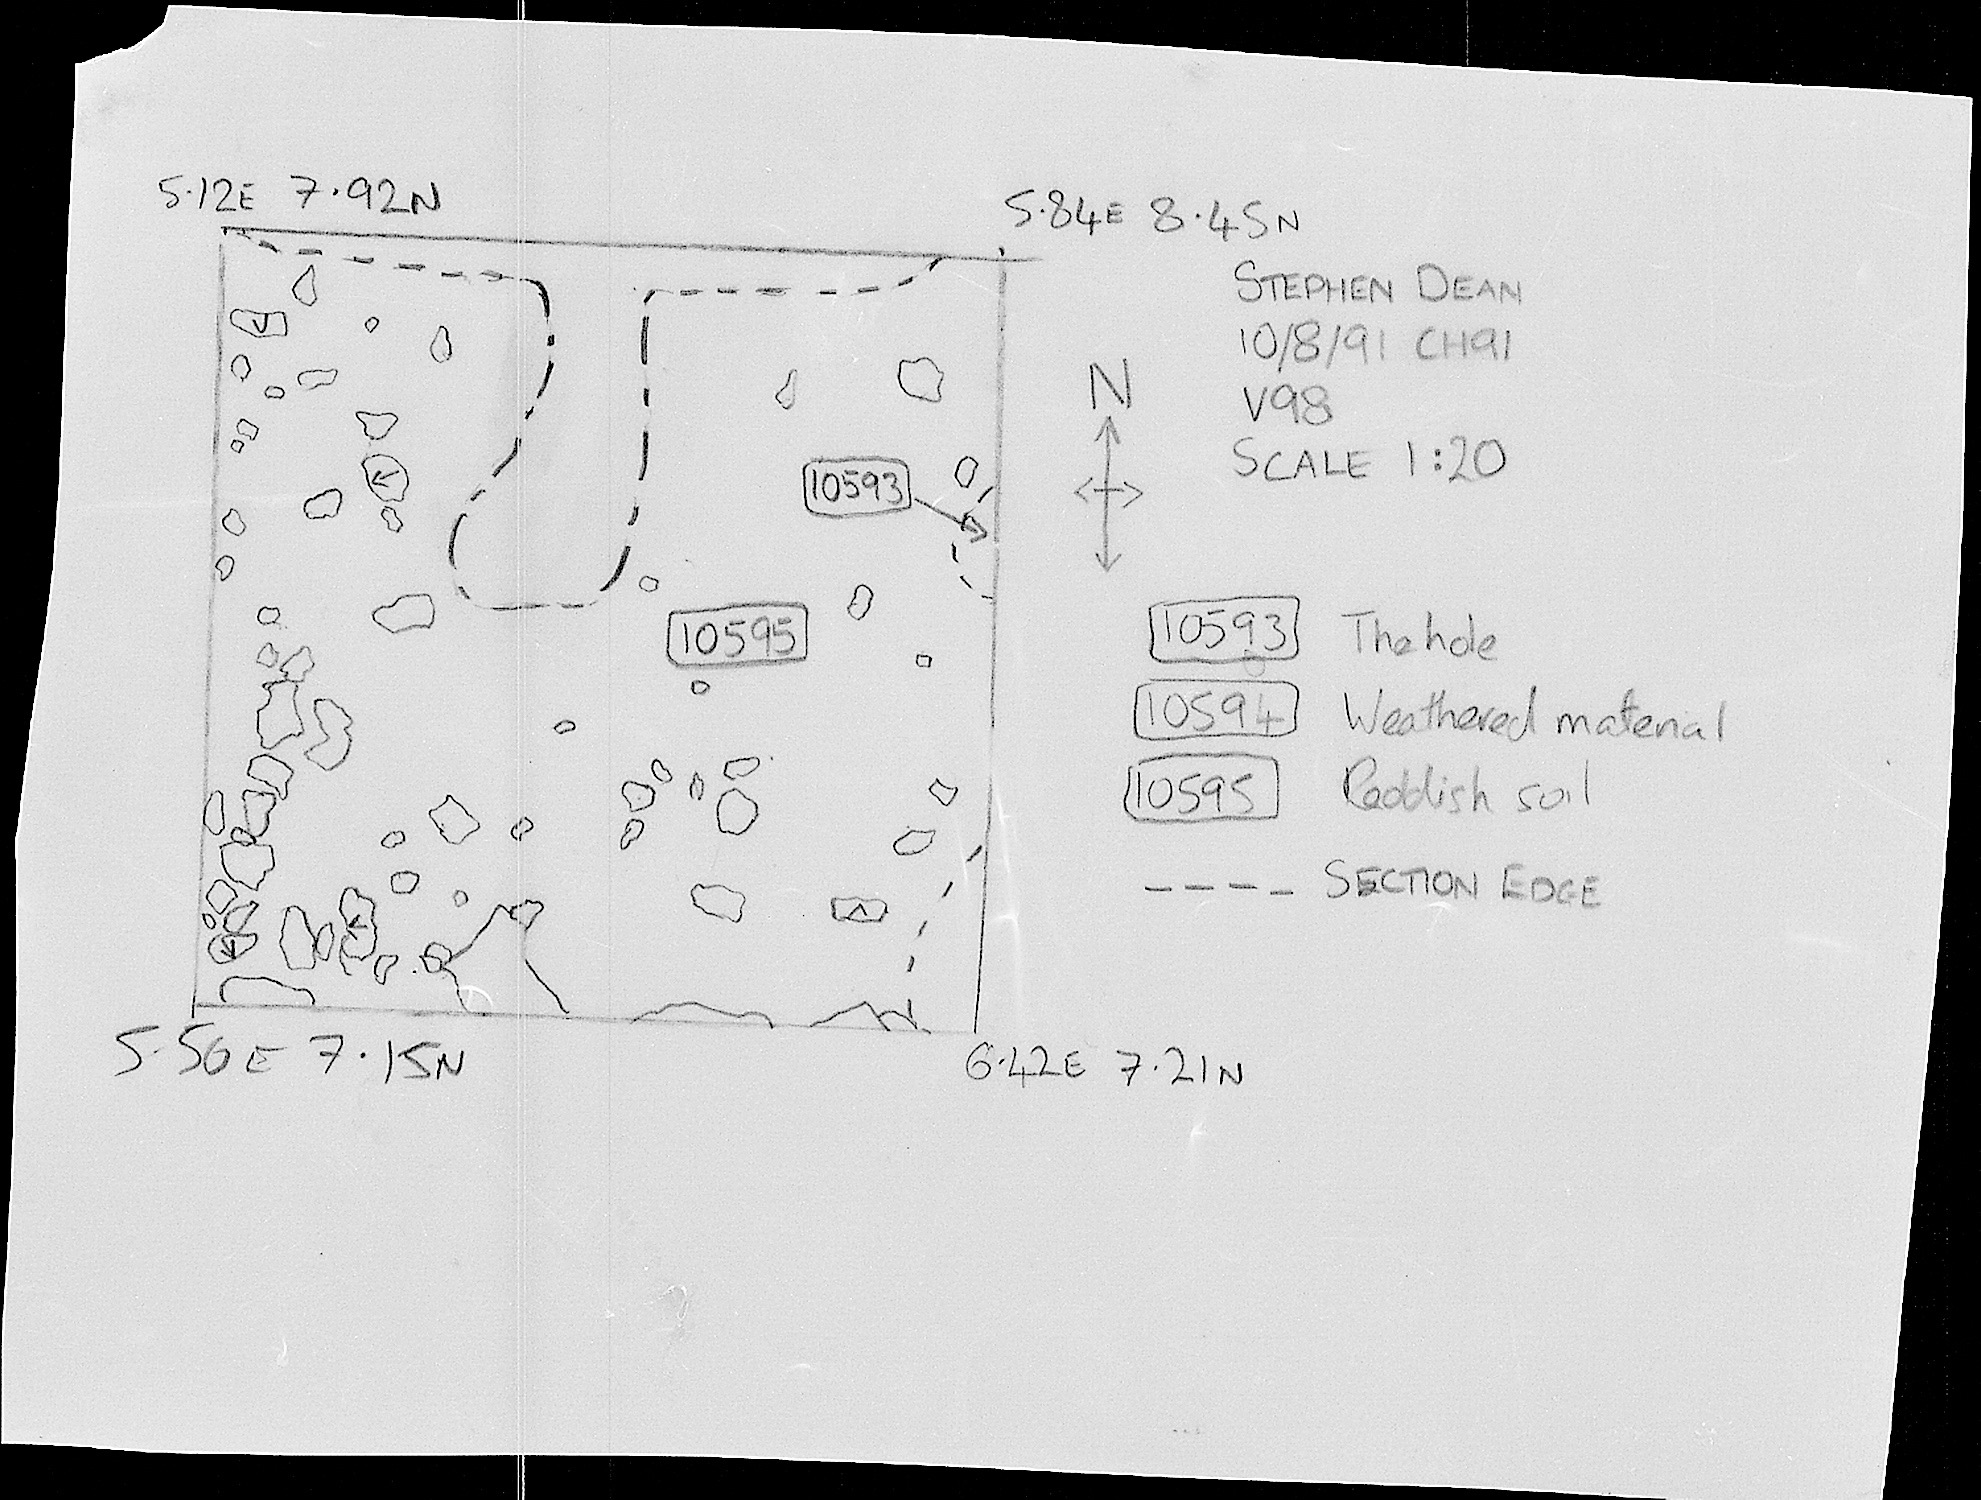 5.12E 7.92N
5.84E 8.45N
STEPHEN DEAN
10/8/91 CH91
V98
SCALE 1:20
N
10593
10595
10593 The hole
10594 Weathered material
10595 Reddish soil
---- SECTION EDGE
5.56E 7.15N
6.42E 7.21N